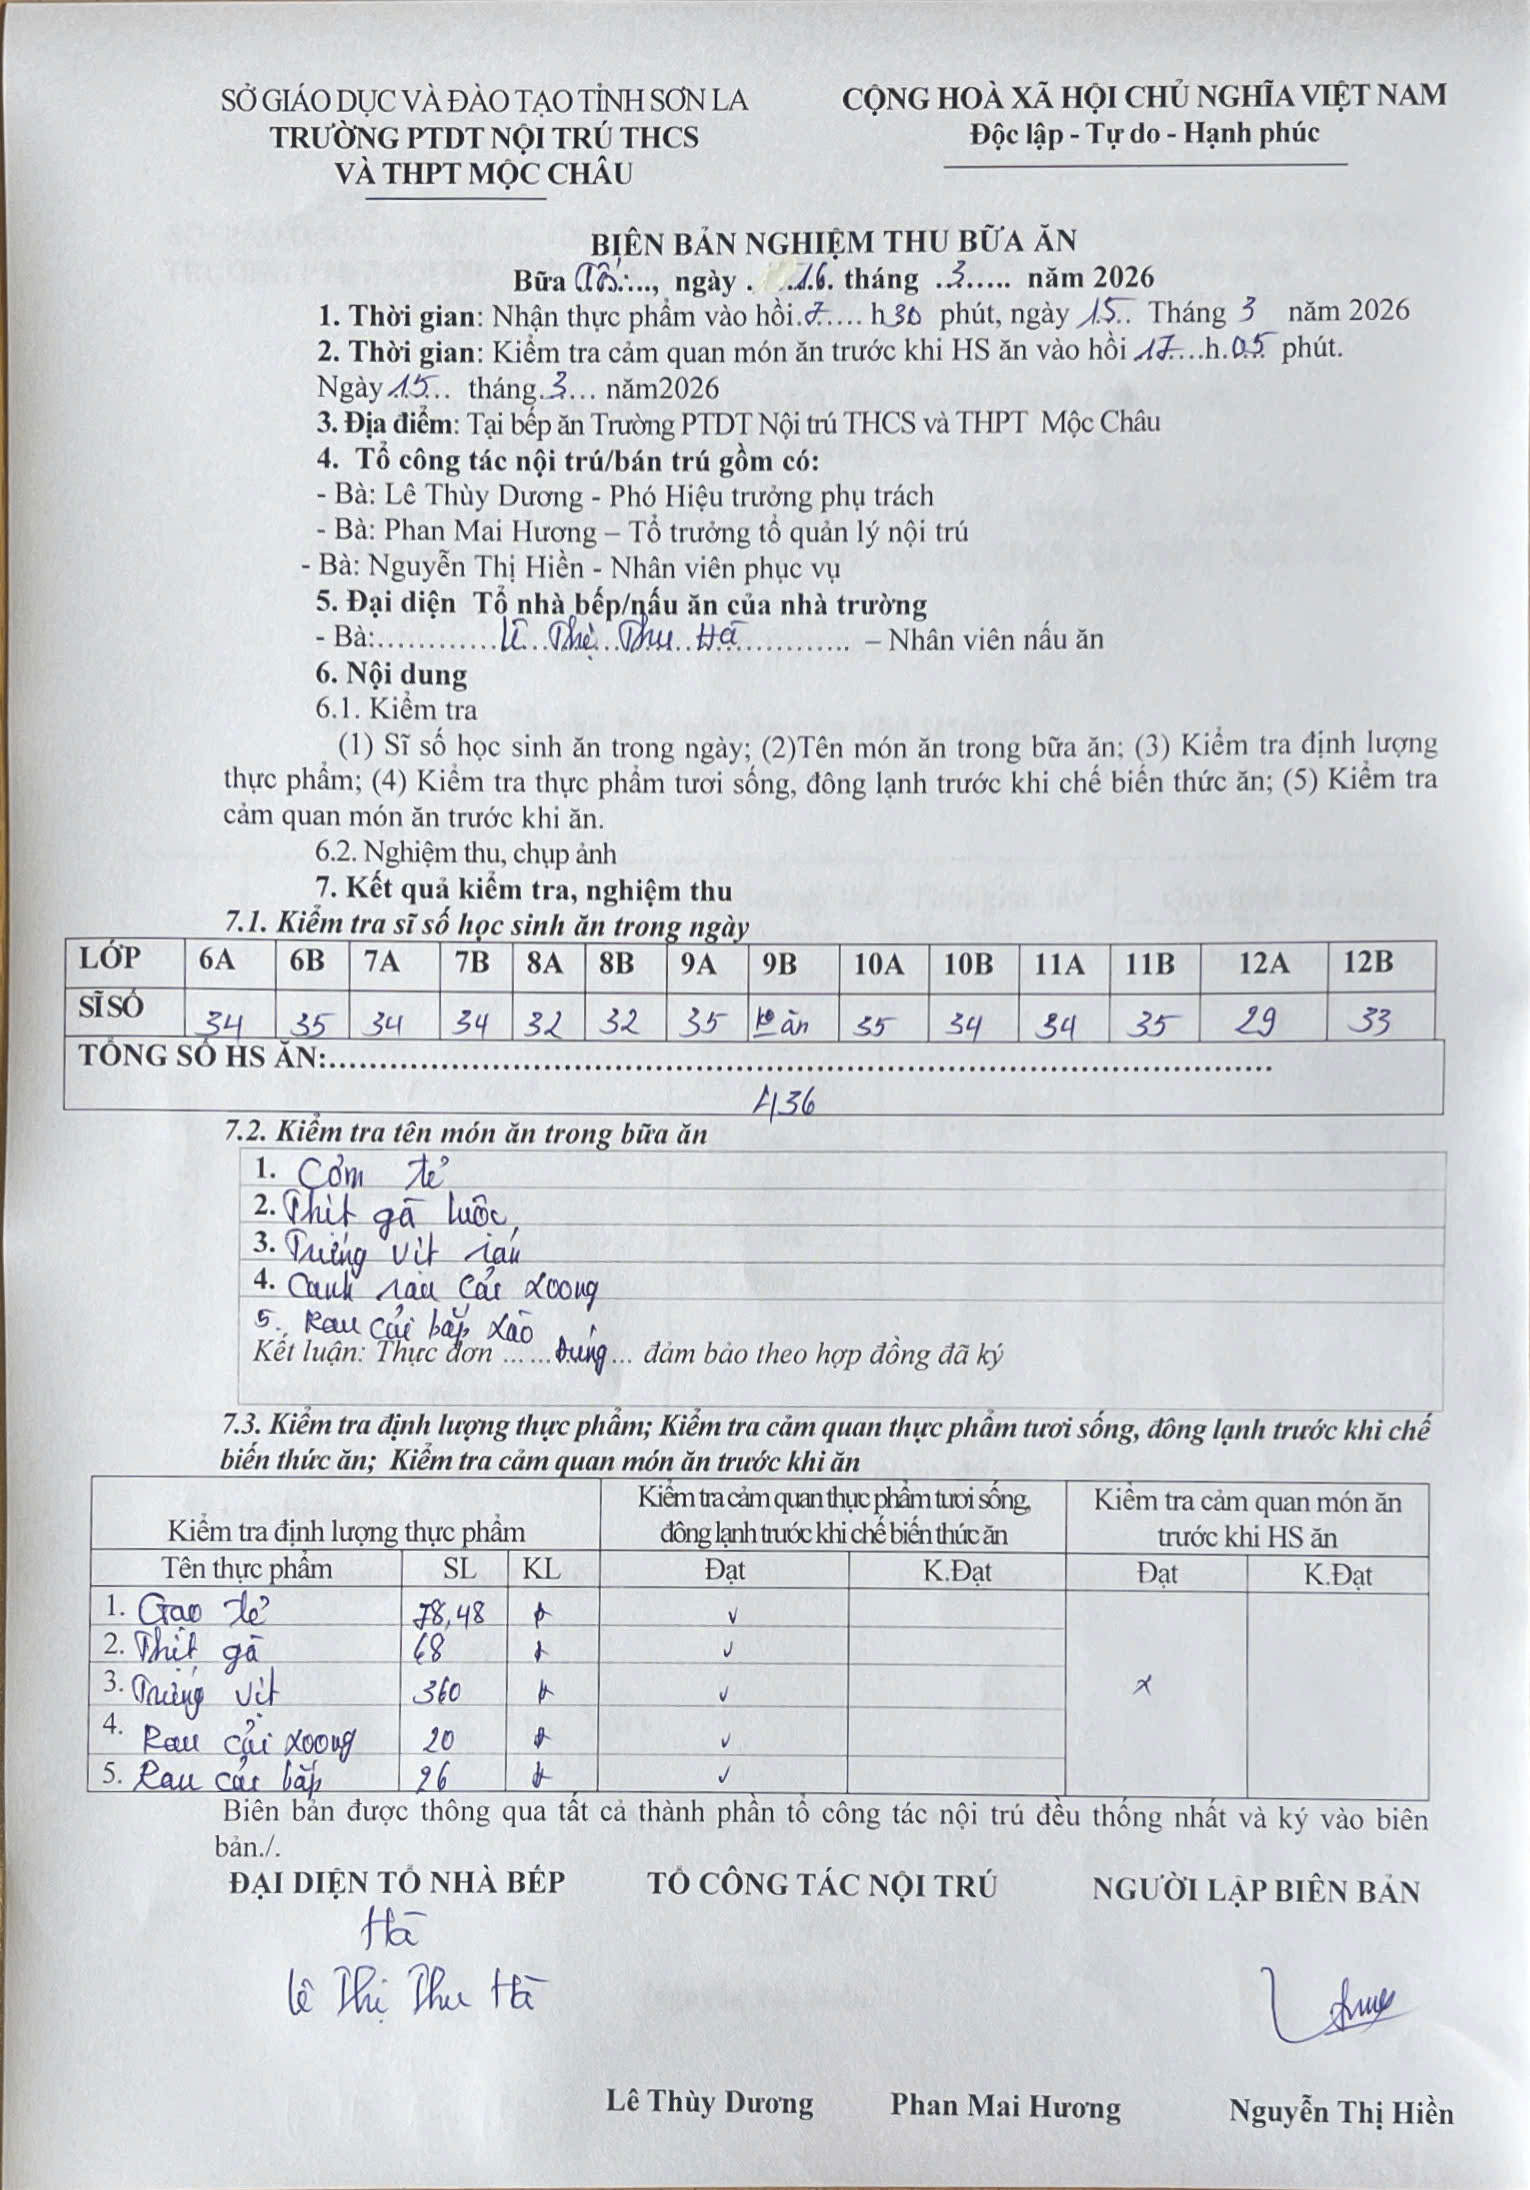 SỞ GIÁO DỤC VÀ ĐÀO TẠO TỈNH SƠN LA
TRƯỜNG PTDT NỘI TRÚ THCS
VÀ THPT MỘC CHÂU
CỘNG HOÀ XÃ HỘI CHỦ NGHĨA VIỆT NAM
Độc lập - Tự do - Hạnh phúc
BIÊN BẢN NGHIỆM THU BỮA ĂN
Bữa Tối...., ngày ...16. tháng ..3..... năm 2026
1. Thời gian: Nhận thực phẩm vào hồi.7..... h30 phút, ngày 15.. Tháng 3 năm 2026
2. Thời gian: Kiểm tra cảm quan món ăn trước khi HS ăn vào hồi 17....h.05. phút.
Ngày 15... tháng.3... năm2026
3. Địa điểm: Tại bếp ăn Trường PTDT Nội trú THCS và THPT Mộc Châu
4. Tổ công tác nội trú/bán trú gồm có:
- Bà: Lê Thùy Dương - Phó Hiệu trưởng phụ trách
- Bà: Phan Mai Hương – Tổ trưởng tổ quản lý nội trú
- Bà: Nguyễn Thị Hiền - Nhân viên phục vụ
5. Đại diện Tổ nhà bếp/nấu ăn của nhà trường
- Bà:.............Lê...Thị...Thu...Hà............. – Nhân viên nấu ăn
6. Nội dung
6.1. Kiểm tra
(1) Sĩ số học sinh ăn trong ngày; (2)Tên món ăn trong bữa ăn; (3) Kiểm tra định lượng
thực phẩm; (4) Kiểm tra thực phẩm tươi sống, đông lạnh trước khi chế biến thức ăn; (5) Kiểm tra
cảm quan món ăn trước khi ăn.
6.2. Nghiệm thu, chụp ảnh
7. Kết quả kiểm tra, nghiệm thu
7.1. Kiểm tra sĩ số học sinh ăn trong ngày
LỚP 6A 6B 7A 7B 8A 8B 9A 9B 10A 10B 11A 11B 12A 12B
SĨ SỐ 34 35 34 34 32 32 35 ko ăn 35 34 34 35 29 33
TỔNG SỐ HS ĂN:....................................................................................
436
7.2. Kiểm tra tên món ăn trong bữa ăn
1. Cơm tẻ
2. Thịt gà luộc
3. Trứng vịt rán
4. Canh rau cải xoong
5. Rau cải bắp xào
Kết luận: Thực đơn ......Đúng... đảm bảo theo hợp đồng đã ký
7.3. Kiểm tra định lượng thực phẩm; Kiểm tra cảm quan thực phẩm tươi sống, đông lạnh trước khi chế
biến thức ăn; Kiểm tra cảm quan món ăn trước khi ăn
Kiểm tra định lượng thực phẩm
Kiểm tra cảm quan thực phẩm tươi sống,
đông lạnh trước khi chế biến thức ăn
Kiểm tra cảm quan món ăn
trước khi HS ăn
Tên thực phẩm SL KL Đạt K.Đạt Đạt K.Đạt
1. Gạo tẻ 78,48 ✓
2. Thịt gà 68 ✓
3. Trứng vịt 360 ✓ x
4. Rau cải xoong 20 ✓
5. Rau cải bắp 26 ✓
Biên bản được thông qua tất cả thành phần tổ công tác nội trú đều thống nhất và ký vào biên
bản./.
ĐẠI DIỆN TỔ NHÀ BẾP TỔ CÔNG TÁC NỘI TRÚ NGƯỜI LẬP BIÊN BẢN
Hà
Lê Thị Thu Hà
Lê Thùy Dương Phan Mai Hương Nguyễn Thị Hiền